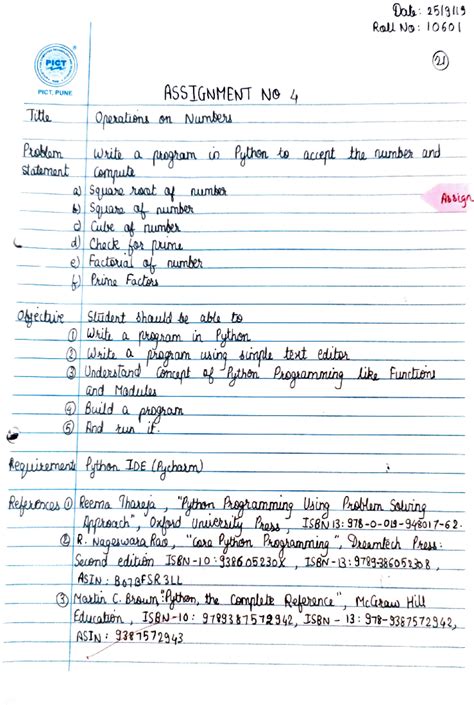 Date: 25/9/19
Roll No: 10601
21
PICT
PICT, PUNE
ASSIGNMENT NO 4
Title Operations on Numbers
Problem Write a program in Python to accept the number and
statement compute
a) Square root of number
b) Square of number
c) Cube of number
d) Check for prime
e) Factorial of number
f) Prime Factors
Assign
Objective Student should be able to
① Write a program in Python
② Write a program using simple text editor
③ Understand concept of Python Programming like Functions
and Modules
④ Build a program
⑤ And run it.
Requirement Python IDE (Pycharm)
References ① Reema Thareja, "Python Programming Using Problem Solving
Approach", Oxford University Press, ISBN 13: 978-0-019-948017-62.
② R. Nageswara Rao, "Core Python Programming", Dreamtech Press:
Second edition ISBN-10: 938605230X, ISBN-13: 9789386052308,
ASIN: B07BFSR3LL
③ Martin C. Brown "Python, the Complete Reference", McGraw Hill
Education, ISBN-10: 9789387572942, ISBN-13: 978-9387572942,
ASIN: 9387572943